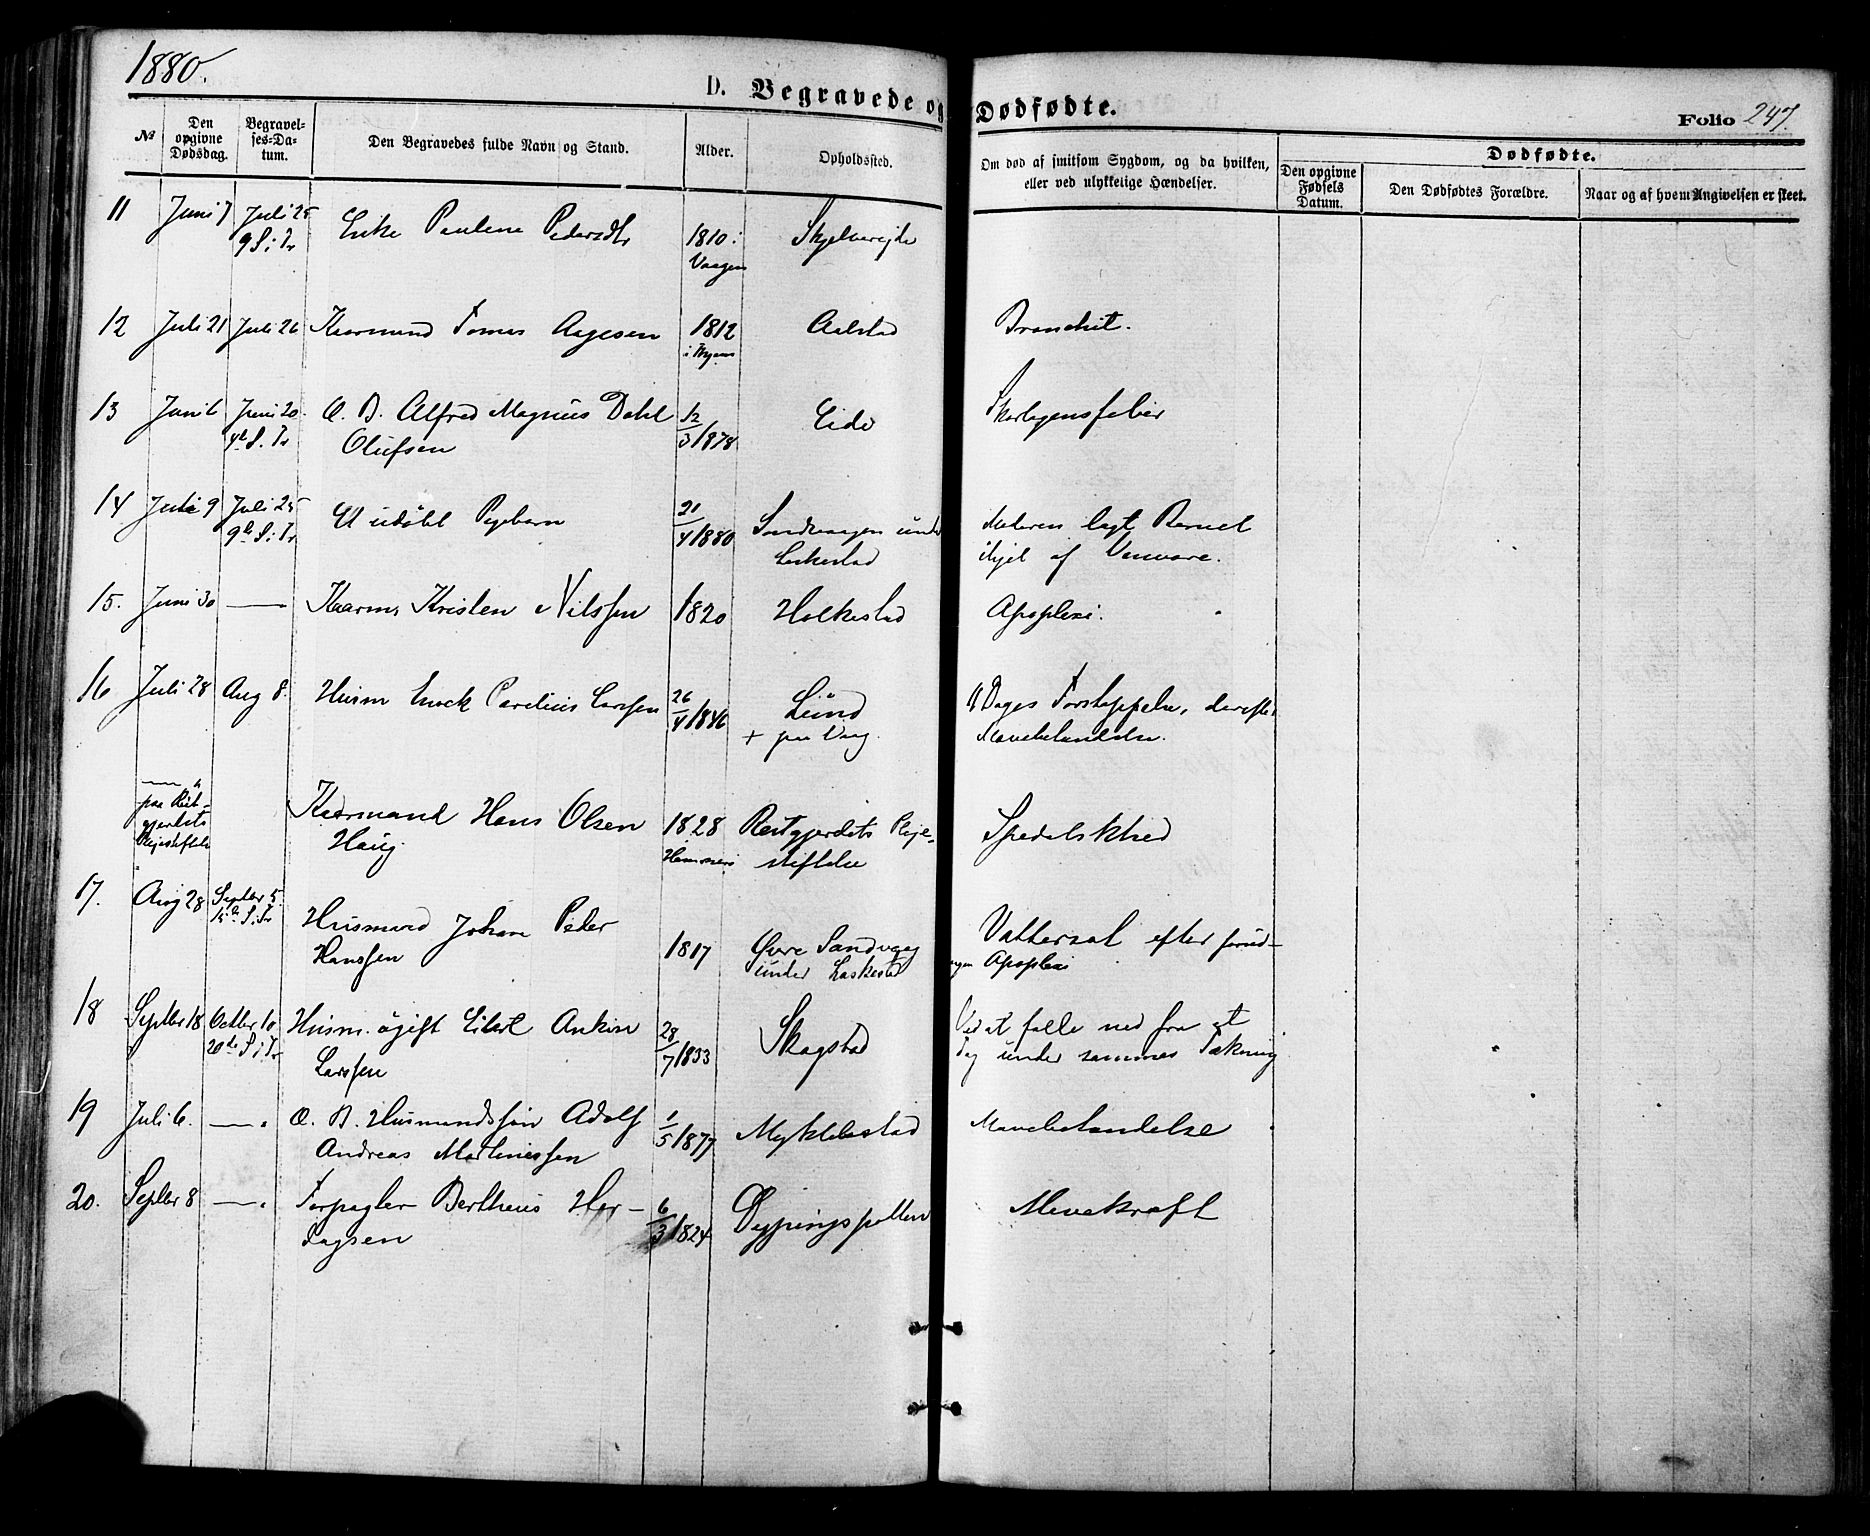 1880.
D. Begravede og Dødfødte.
Folio 247.
№
Den opgivne Dødsdag.
Begravelses-Datum.
Den Begravedes fulde Navn og Stand.
Alder.
Opholdssted.
Om død af smitsom Sygdom, og da hvilken,
eller ved ulykkelige Hændelser.
Dødfødte.
Den opgivne Fødsels Datum.
Den Dødfødtes Forældre.
Naar og af hvem Angivelsen er skeet.
11 Juni 7 Juli 25 Enke Paulene Pedersdtr 1810 i Skjelvereide
9 S. i Tr Vaagen
12 Juli 21 Juli 26 Kaarmand Tomas Aagesen 1812 Aalstad Bronchit.
13 Juni 6 Juni 20. Æ. B. Alfred Magnus Dahl 12/3 1878 Eide Skarlagensfeber
4de S. Tr Olufsen
14 Juli 9 Juli 25 Et udöbt Pigebarn 21/4 1880 Sandvaagen under Moderen lagt Barnet
9de S. i Tr Leskestad ihjel af Vanvare.
15. Juni 30 — Kaarm. Kristen Nilssen 1820 Holkestad Apoplexi.
16 Juli 28 Aug 8. Husm Enok Parelius Larssen 26/4 1846 Lund 11 Dages Forstoppelse, derefter
+ paa Vaag. Mavebetændelse.
— " paa Reitgjerdets Plejestiftelse Kaarmand Hans Olsen 1828 Reitgjerdets Pleje- Spedalskhed
Haug. stiftelse
17. Aug 28 Septbr 5. Husmand Johan Peder 1817 Øvre Sandvaag Vattersot efter forud-
15de S. i Tr Hanssen under Laskestad gangen Apoplexi
18 Septbr 18 Octbr 10 Husm. ógift Edvart Ankin 28/7 1833 Skagstad Ved at falde ned fra et
20de S. i Tr Larssen Tag under sammes Tækning
19 Juli 6. — " Æ. B. Husmandssön Adolf 1/5 1877 Myklebostad Mavebetændelse
Andreas Martinussen
20. Septbr 8 — " Forpagter Bertheus Har- 6/3 1824 Dyppingspollen Mavekræft
tagsen